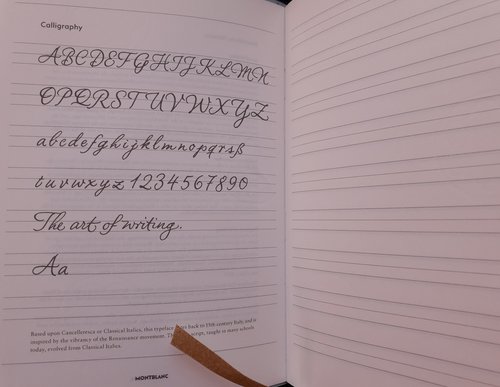 Calligraphy
ABCDEFGHIJKLMN
OPQRSTUVWXYZ
abcdefghijklmnopqrsß
tuvwxyz 1234567890
The art of writing.
Aa
Based upon Cancelleresca or Classical Italics, this typeface back to 15th-century Italy and is
inspired by the vibrancy of the Renaissance movement. script, taught in many schools
today, evolved from Classical Italics.
MONTBLANC